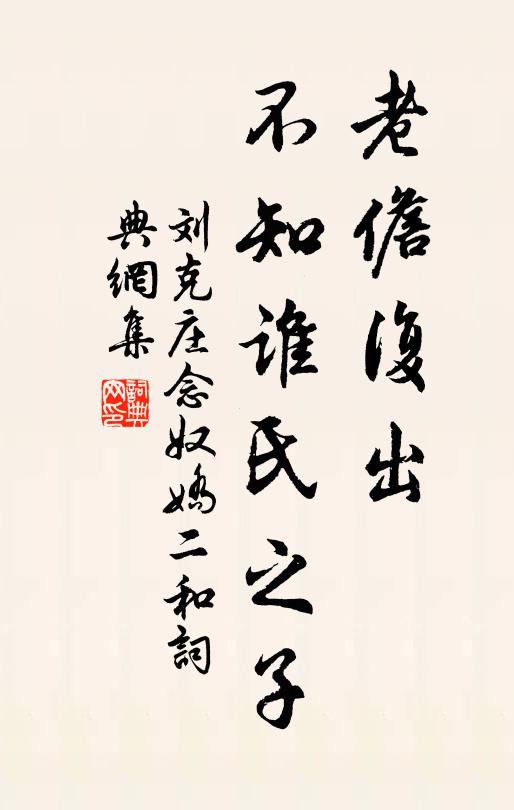 老儋復出
不知谁氏之子
刘克庄念奴嬌二和詞
典網集
詞典
网印